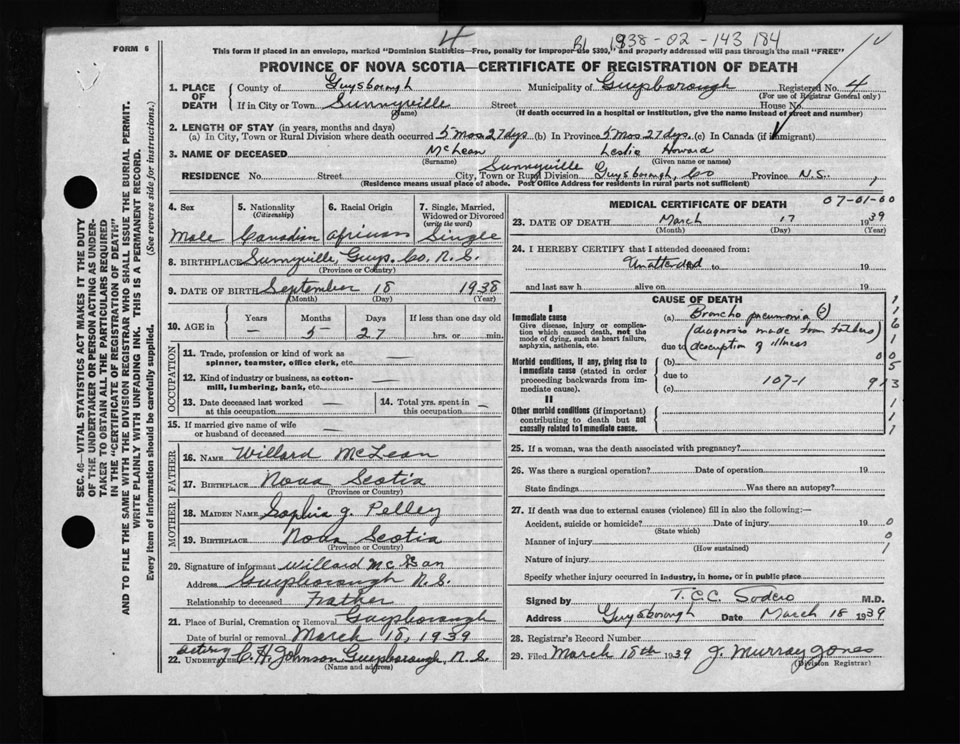 FORM 6
4
B1 1938-02-143 184
This form if placed in an envelope, marked "Dominion Statistics—Free, penalty for improper use $300," and properly addressed will pass through the mail "FREE"
PROVINCE OF NOVA SCOTIA—CERTIFICATE OF REGISTRATION OF DEATH
1. PLACE OF DEATH County of Guysborough Municipality of Guysborough Registered No. 4
(For use of Registrar General only)
If in City or Town Sunnyville Street House No.
(Name) (If death occurred in a hospital or institution, give the name instead of street and number)
2. LENGTH OF STAY (in years, months and days)
(a) In City, Town or Rural Division where death occurred 5 Mos 27 dys. (b) In Province 5 Mos 27 dys. (c) In Canada (if immigrant)
3. NAME OF DECEASED McLean Leslie Howard
(Surname) (Given name or names)
RESIDENCE No. Street City, Town or Rural Division Sunnyville Guysborough, Co Province N.S.
(Residence means usual place of abode. Post Office Address for residents in rural parts not sufficient)
4. Sex 5. Nationality (Citizenship) 6. Racial Origin 7. Single, Married, Widowed or Divorced (write the word)
Male Canadian African Single
8. BIRTHPLACE Sunnyville, Guys. Co. N.S.
(Province or Country)
9. DATE OF BIRTH September 18 1938
(Month) (Day) (Year)
10. AGE in Years Months Days If less than one day old
— 5 27 hrs. or min.
OCCUPATION
11. Trade, profession or kind of work as spinner, teamster, office clerk, etc. —
12. Kind of industry or business, as cotton-mill, lumbering, bank, etc. —
13. Date deceased last worked at this occupation — 14. Total yrs. spent in this occupation —
15. If married give name of wife or husband of deceased —
FATHER
16. NAME Willard McLean
17. BIRTHPLACE Nova Scotia
(Province or Country)
MOTHER
18. MAIDEN NAME Sophia J. Pelley
19. BIRTHPLACE Nova Scotia
(Province or Country)
20. Signature of informant Willard McLean
Address Guysborough N.S.
Relationship to deceased Father
21. Place of Burial, Cremation or Removal Guysborough
Date of burial or removal March 18, 1939
acting
22. UNDERTAKER C. H. Johnson Guysborough, N.S.
(Name and address)
MEDICAL CERTIFICATE OF DEATH 07-01-00
23. DATE OF DEATH March 17 1939
(Month) (Day) (Year)
24. I HEREBY CERTIFY that I attended deceased from:
Unattended to 19
and last saw h alive on 19
CAUSE OF DEATH
I
Immediate cause
Give disease, injury or complication which caused death, not the mode of dying, such as heart failure, asphyxia, asthenia, etc.
(a) Broncho pneumonia (?)
(diagnosis made from fathers
due to description of illness
Morbid conditions, if any, giving rise to immediate cause (stated in order proceeding backwards from immediate cause).
(b)
due to
(c) 107-1
II
Other morbid conditions (if important) contributing to death but not causally related to immediate cause.
1
1
6
1
0 0
5
9 1 3
1
1
1
25. If a woman, was the death associated with pregnancy?
26. Was there a surgical operation? Date of operation 19
State findings Was there an autopsy?
27. If death was due to external causes (violence) fill in also the following:—
Accident, suicide or homicide? Date of injury 19
(State which)
Manner of injury
(How sustained)
Nature of injury
0
0
1
Specify whether injury occurred in industry, in home, or in public place
Signed by T.C.C. Sodero M.D.
Address Guysborough Date March 18 1939
28. Registrar's Record Number
29. Filed March 18th 1939 J. Murray Jones
(Division Registrar)
SEC. 46—VITAL STATISTICS ACT MAKES IT THE DUTY
OF THE UNDERTAKER OR PERSON ACTING AS UNDER-
TAKER TO OBTAIN ALL THE PARTICULARS REQUIRED
IN THE "CERTIFICATE OF REGISTRATION OF DEATH"
AND TO FILE THE SAME WITH THE DIVISION REGISTRAR WHO SHALL ISSUE THE BURIAL PERMIT.
WRITE PLAINLY WITH UNFADING INK. THIS IS A PERMANENT RECORD.
Every item of information should be carefully supplied. (See reverse side for instructions.)